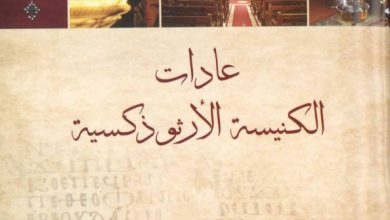 عادات
الكنيسة الأرثوذكسية